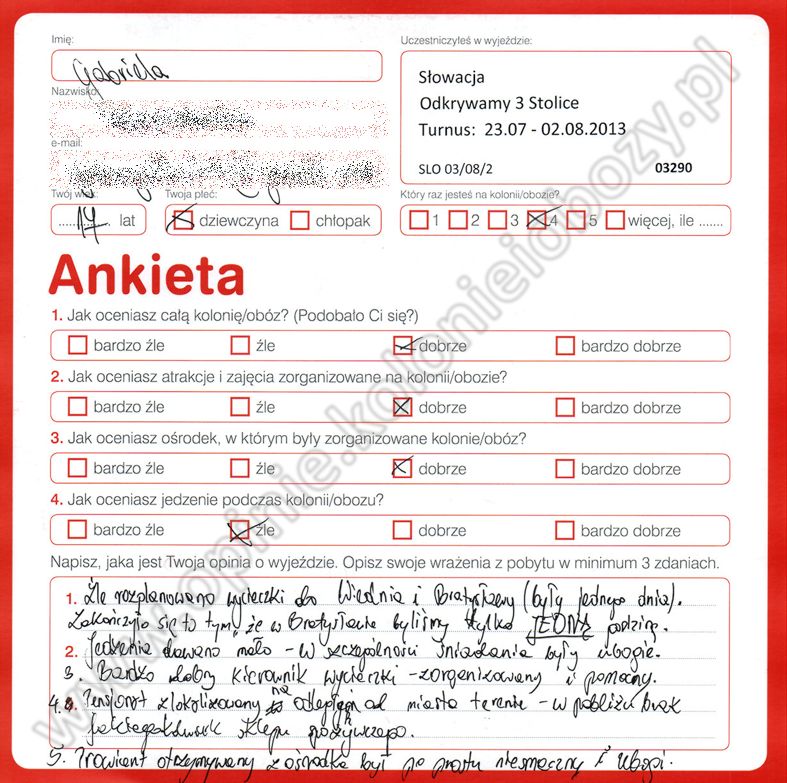 Imię:
Gabriela
Nazwisko:
e-mail:
Twój wiek:
17 lat
Twoja płeć:
dziewczyna chłopak
Uczestniczyłeś w wyjeździe:
Słowacja
Odkrywamy 3 Stolice
Turnus: 23.07 - 02.08.2013
SLO 03/08/2 03290
Który raz jesteś na kolonii/obozie?
1 2 3 4 5 więcej, ile .......
Ankieta
1. Jak oceniasz całą kolonię/obóz? (Podobało Ci się?)
bardzo źle źle dobrze bardzo dobrze
2. Jak oceniasz atrakcje i zajęcia zorganizowane na kolonii/obozie?
bardzo źle źle dobrze bardzo dobrze
3. Jak oceniasz ośrodek, w którym były zorganizowane kolonie/obóz?
bardzo źle źle dobrze bardzo dobrze
4. Jak oceniasz jedzenie podczas kolonii/obozu?
bardzo źle źle dobrze bardzo dobrze
Napisz, jaka jest Twoja opinia o wyjeździe. Opisz swoje wrażenia z pobytu w minimum 3 zdaniach.
1. Źle rozplanowano wycieczki do Wiednia i Bratysławy (były jednego dnia).
Zakończyło się to tym, że w Bratysławie byliśmy tylko JEDNĄ godzinę.
2. Jedzenia dawano mało - w szczególności śniadania były ubogie.
3. Bardzo dobry kierownik wycieczki - zorganizowany i pomocny.
4. Pensjonat zlokalizowany na odległym od miasta terenie - w pobliżu brak
jakiegokolwiek sklepu spożywczego.
5. Prowiant otrzymywany z ośrodka był po prostu niesmaczny i ubogi.
www.opinie.kolonieiobozy.pl